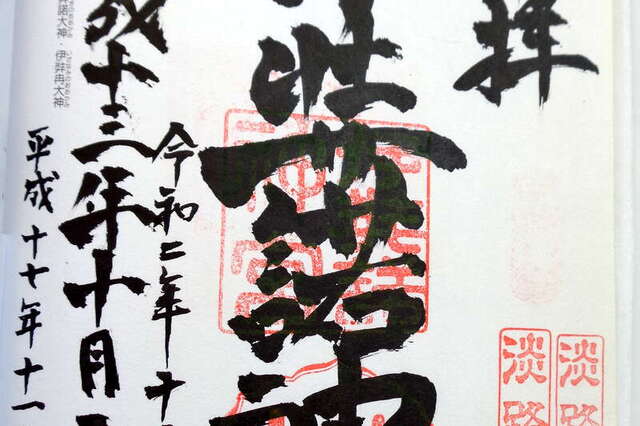 拝
弉諾神
淡路
淡路
令和二年十
成十三年十月
平成十七年十一
諾大神・伊弉冉大神